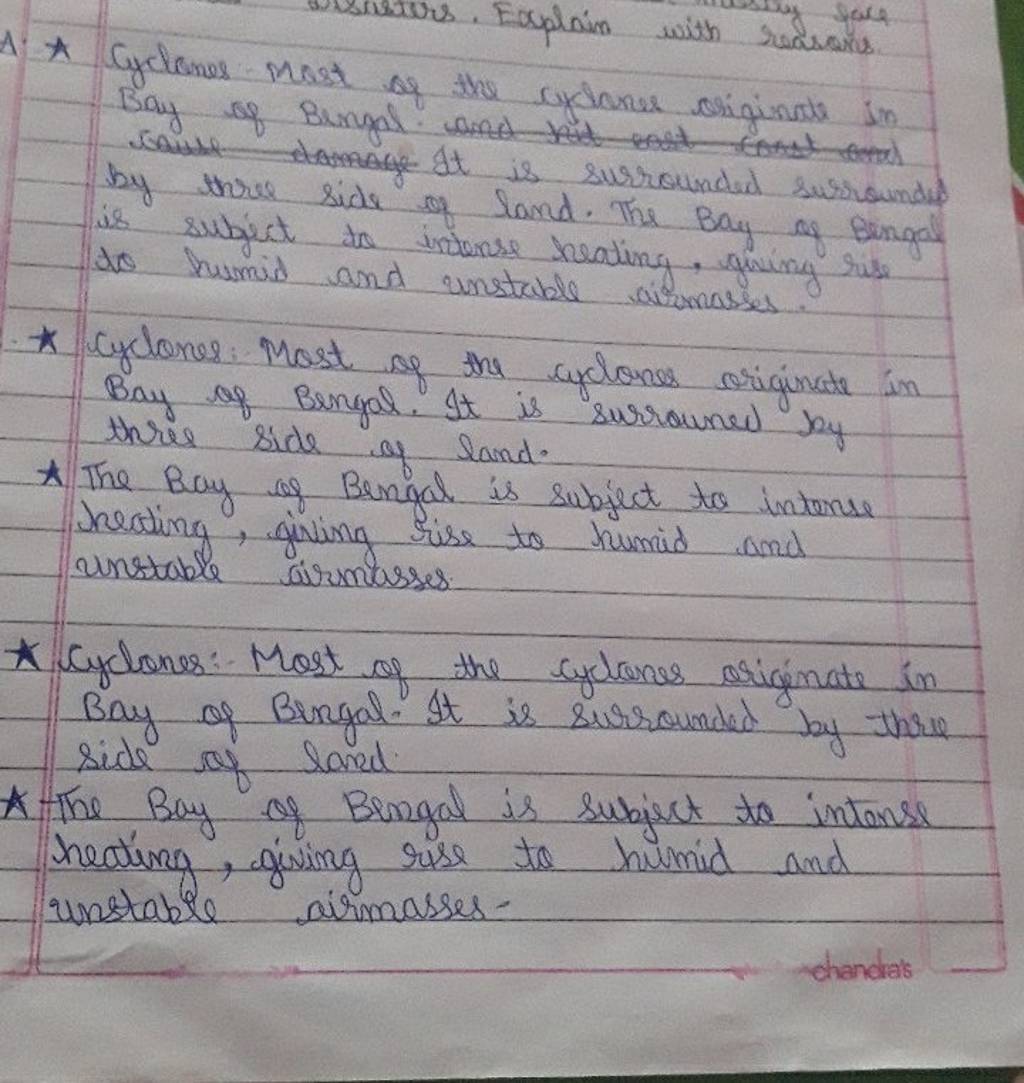 Disasters. Explain with reasons.
A ★ Cyclones - Most of the cyclones originate in
Bay of Bengal. and hit east coast and
cause damage It is surrounded surrounded
by three side of land. The Bay of Bengal
is subject to intense heating, giving rise
to humid and unstable airmasses.
★ Cyclones: Most of the cyclones originate in
Bay of Bengal. It is surrouned by
three side of land.
★ The Bay of Bengal is subject to intense
heating, giving rise to humid and
unstable airmasses.
★ Cyclones:- Most of the cyclones originate in
Bay of Bengal. It is surrounded by three
side of land.
★ The Bay of Bengal is subject to intense
heating, giving rise to humid and
unstable airmasses-
chandra's